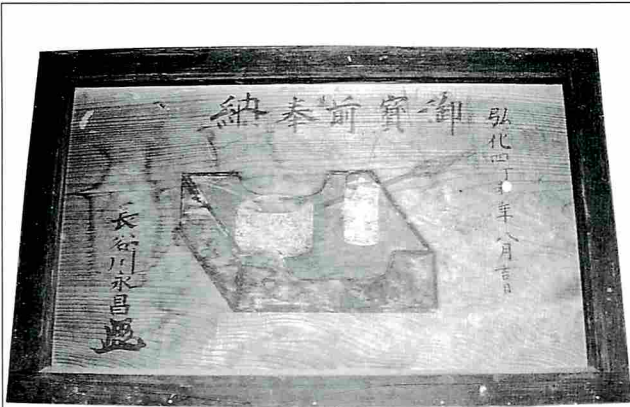 御寳前奉納
弘化四丁未年八月吉日
長谷川永昌